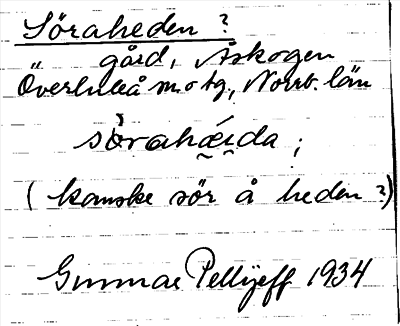 Söraheden ?
gård, Åskogen
Överluleå m o tg, Norrb. län
sö̀rahæ̀́i̯da ;
( kanske sör å heden ?)
Gunnar Pellijeff 1934